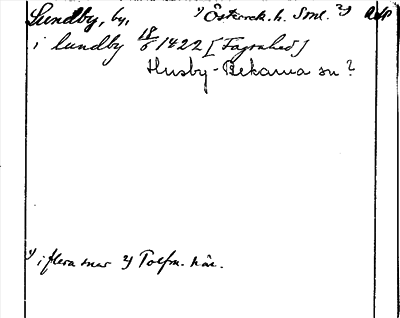 Lundby, by, 1) Österrek. h. Sml. 2) RAP
i lundby 18/6 1422 [Fagrahed]
Husby-Rekarna sn?
1) i flera snar 2) Torfm. här.